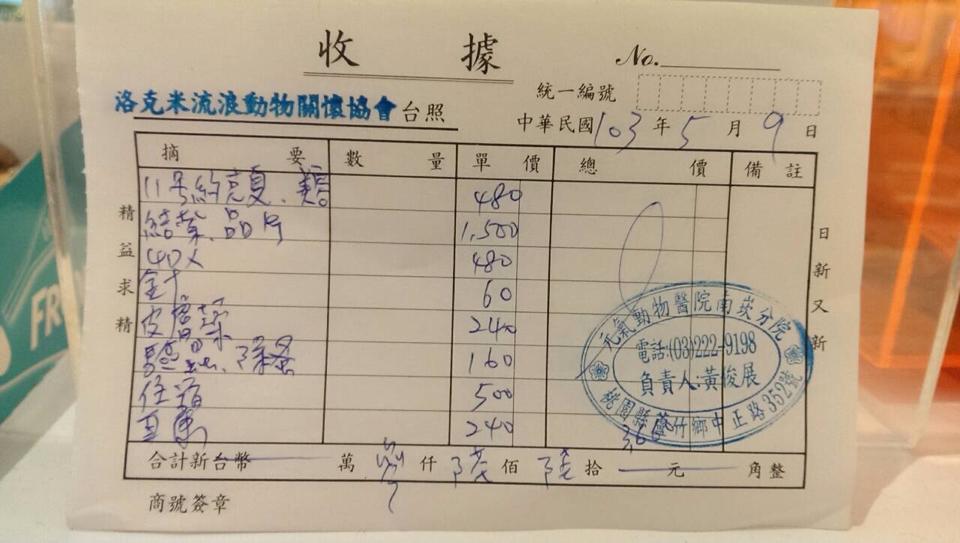 收 據
No.
統一編號
洛克米流浪動物關懷協會 台照
中華民國 103 年 5 月 9 日
摘 要 數 量 單 價 總 價 備 註
11号 480
品片 1,500
40x 480
針 60
皮膚藥 240
160
住宿 500
240
366
合計新台幣 萬 仟 陸 佰 陸 拾 元 角整
商號簽章
精益求精
日新又新
元氣動物醫院南崁分院
電話:(03)222-9198
負責人:黃俊展
桃園縣蘆竹鄉中正路352號
FR